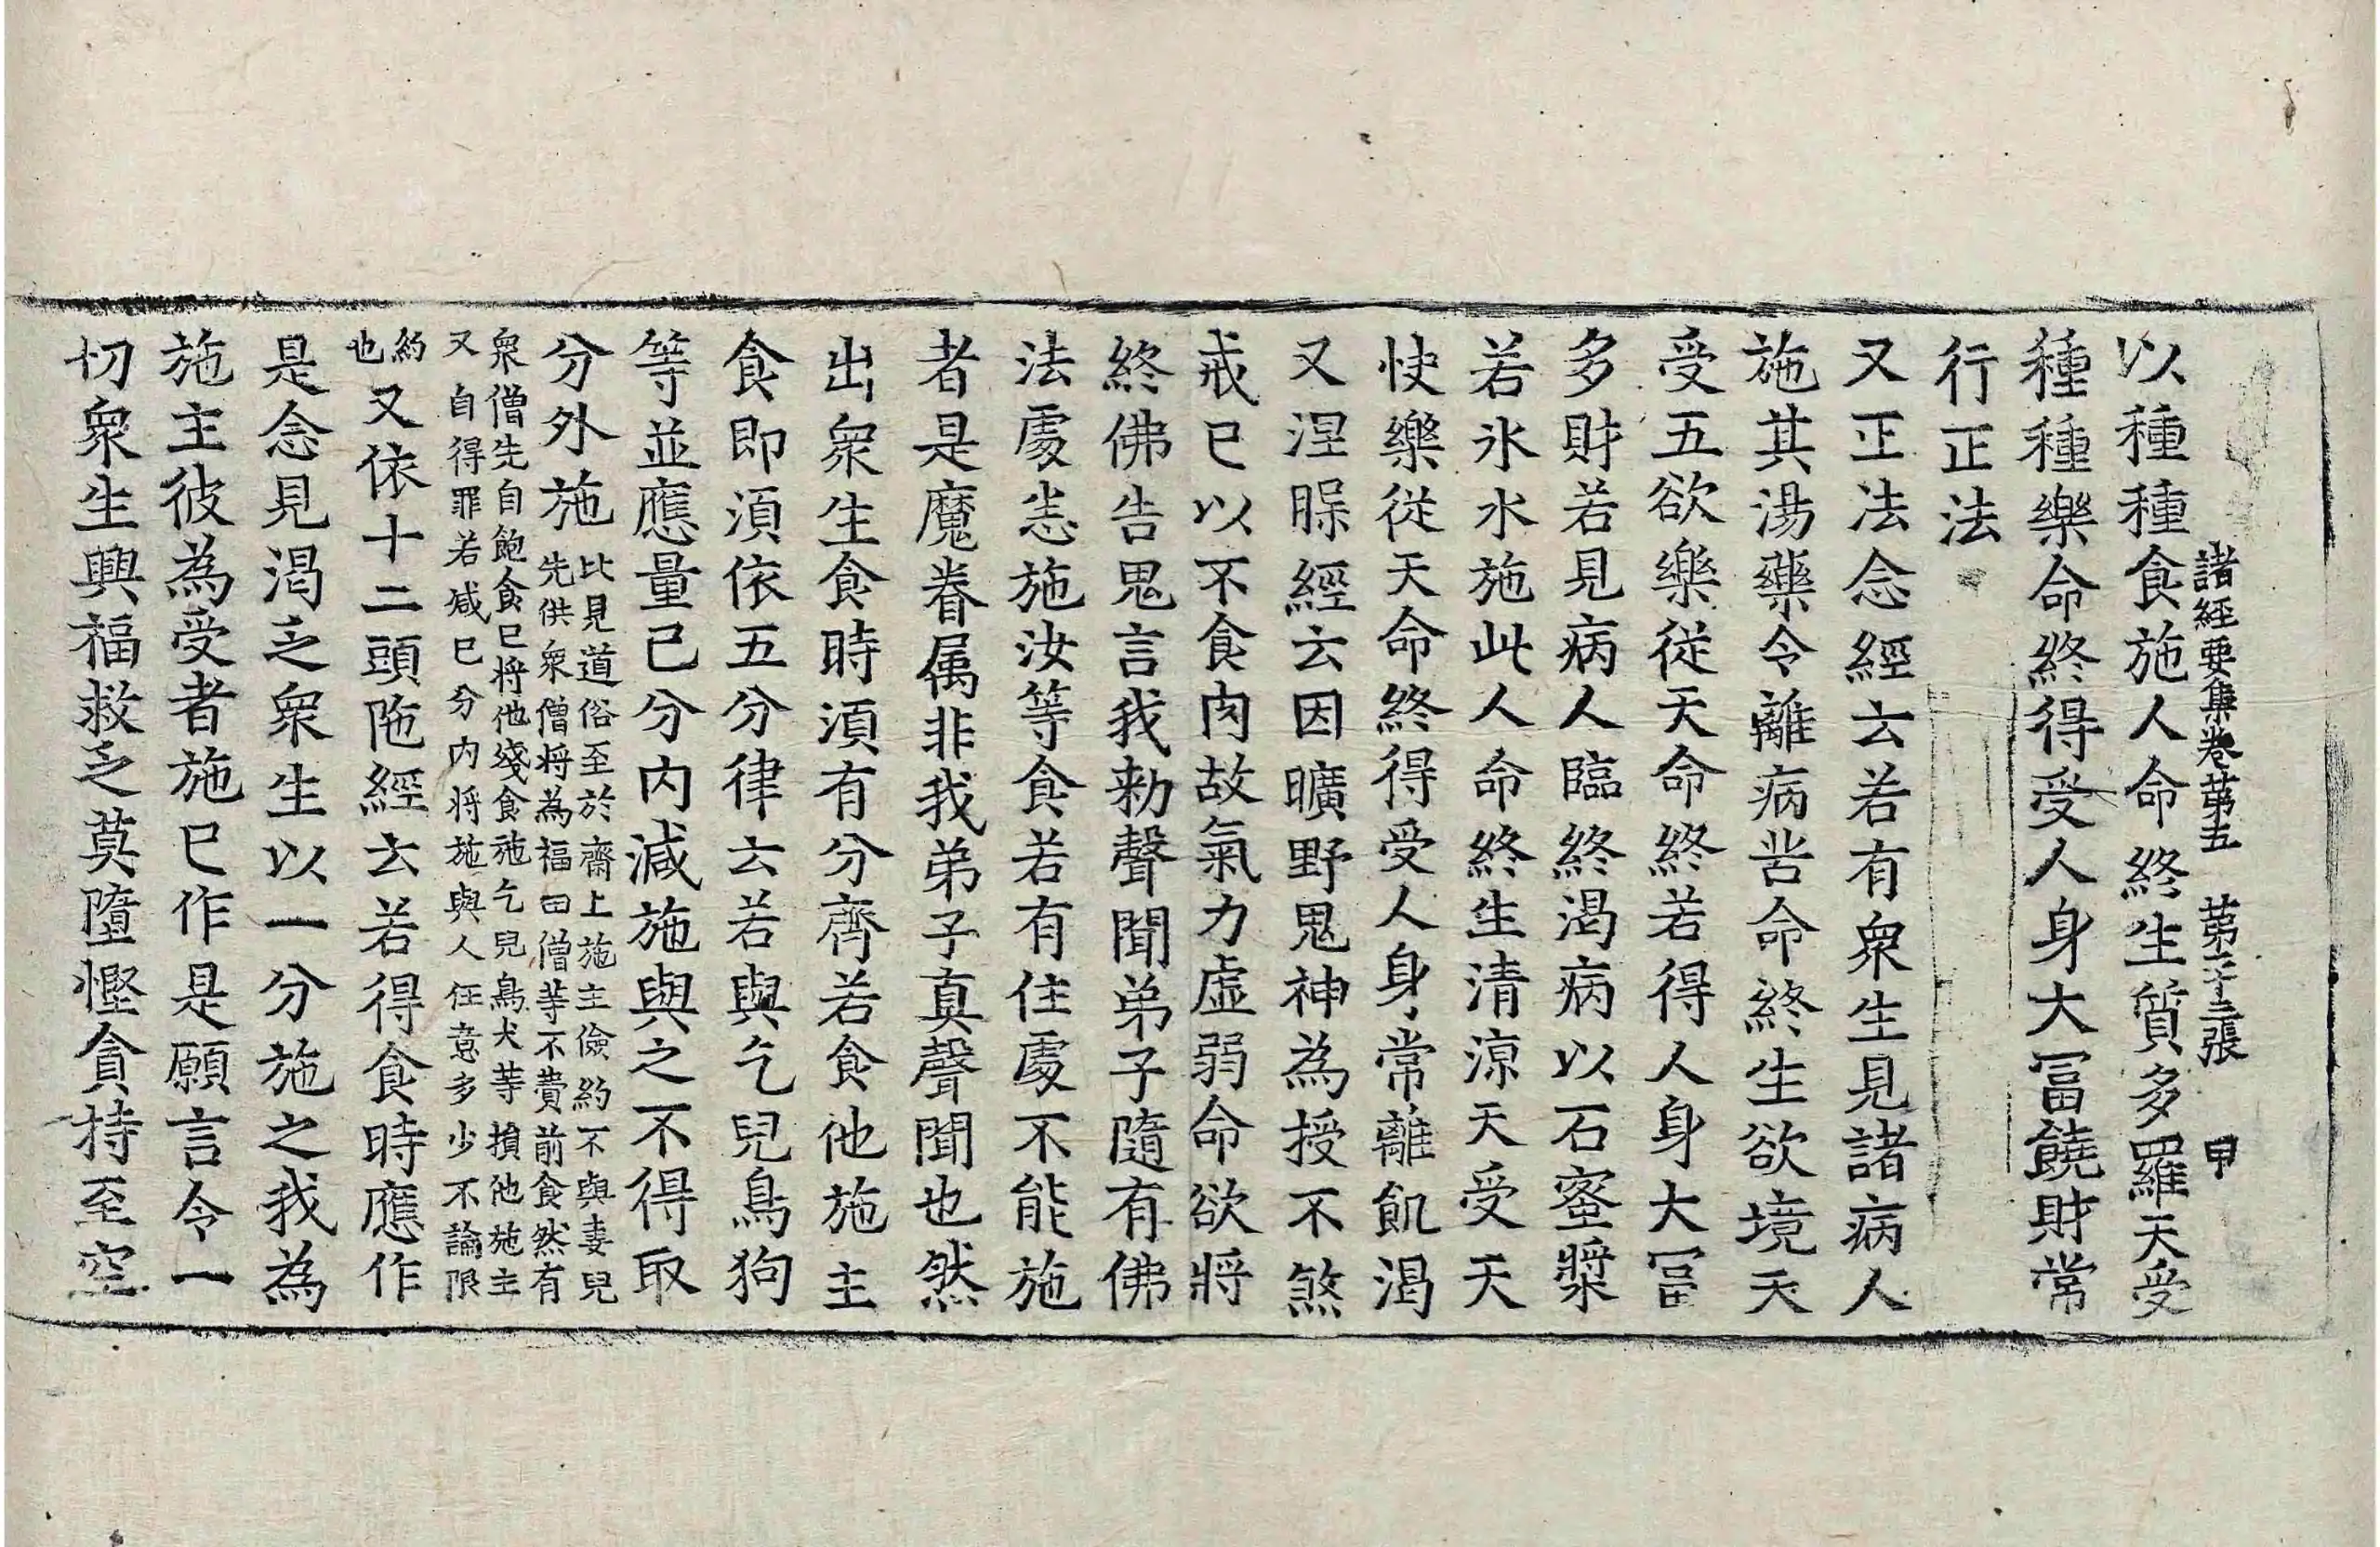 諸經要集卷苐五　苐二十三張　甲
以種種食施人命終生質多羅天受
種種樂命終得受人身大冨饒財常
行正法
又正法念經云若有衆生見諸病人
施其湯藥令離病苦命終生欲境天
受五欲樂從天命終若得人身大冨
多財若見病人臨終渴病以石蜜漿
若氷水施此人命終生清涼天受天
快樂從天命終得受人身常離飢渴
又涅槃經云因曠野鬼神為授不煞
戒已以不食肉故氣力虛弱命欲將
終佛告鬼言我勑聲聞弟子隨有佛
法處悉施汝等食若有住處不能施
者是魔眷属非我弟子真聲聞也然
出衆生食時湏有分齊若食他施主
食即湏依五分律云若與乞兒鳥狗
等並應量已分内減施與之不得取
分外施比見道俗至於齋上施主儉約不與妻兒
先供衆僧將為福田僧等不費前食然有
衆僧先自飽食已將他殘食施乞兒鳥犬等損他施主
又自得罪若減已分内將施與人任意多少不論限
約
也又依十二頭陁經云若得食時應作
是念見渴乏衆生以一分施之我為
施主彼為受者施已作是願言令一
切衆生興福救乏莫墮慳貪持至空